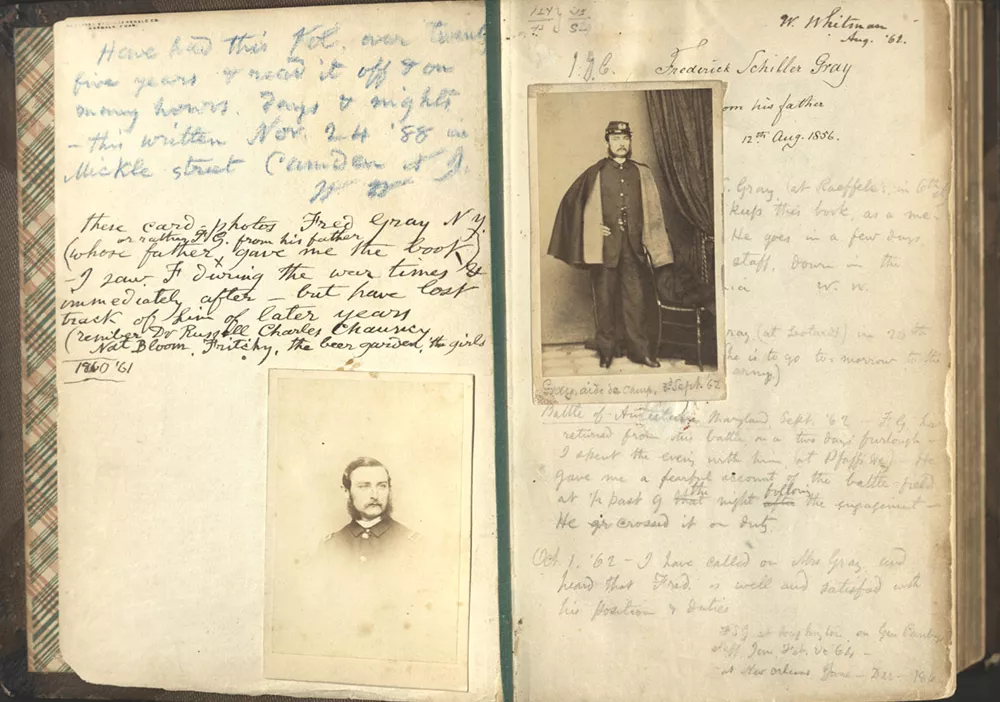 Have had this Vol. over twenty
five years & read it off & on
many hours, days & nights
- this written Nov. 24 '88 in
Mickle street Camden N J.
W W
These card photos Fred Gray N.Y.
or rather F G. from his father
(whose father gave me the book)
- I saw F during the war times &
immediately after - but have lost
track of him of later years
(Dr Russell Charles Chauncy
Nat Bloom, Fritchy, the beer garden, the girls
1860 '61
W. Whitman
Aug. '62.
Frederick Schiller Gray
om his father
12th Aug. 1856.
Gray (at Raeffele's, in 6th
keep this book, as a me-
He goes in a few days
staff, down in the
W. W.
ray (at
he is to go to-morrow to the
army)
Gray, aide de camp, Sept. 62
Battle of Antietam, Maryland Sept. '62 - F. G. has
returned from the battle, on a two days' furlough -
I spent the evening with him (at Pfaff's - He
gave me a fearful account of the battle-field
at ½ past 9 the night following the engagement -
He crossed it on duty.
Oct 1. '62 - I have called on Mrs. Gray, and
heard that Fred. is well and satisfied with
his position & duties
F S G at Washington on Gen
staff
at New Orleans